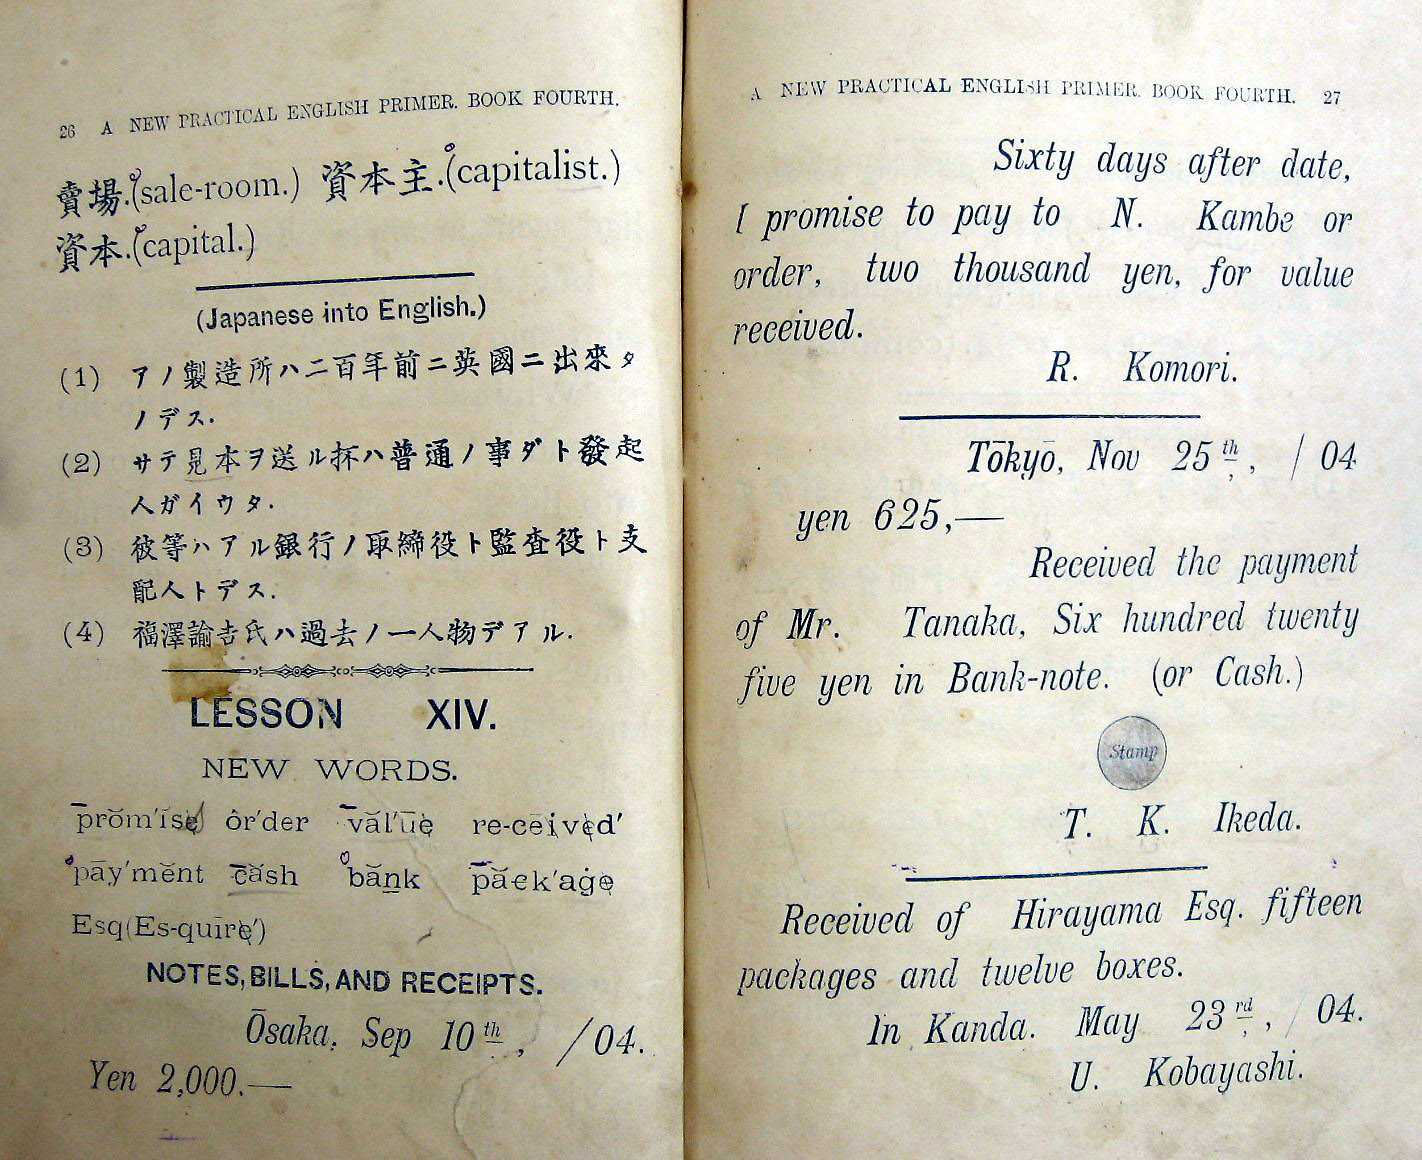 26 A NEW PRACTICAL ENGLISH PRIMER. BOOK FOURTH.
賣場.(sale-room.) 資本主.(capitalist.)
資本.(capital.)
(Japanese into English.)
(1) アノ製造所ハ二百年前ニ英國ニ出來タ
ノデス.
(2) サテ見本ヲ送ル抔ハ普通ノ事ダト發起
人ガイウタ.
(3) 彼等ハアル銀行ノ取締役ト監査役ト支
配人トデス.
(4) 福澤諭吉氏ハ過去ノ一人物デアル.
LESSON XIV.
NEW WORDS.
prŏm′ĭse ôr′der văl′ūe re-cēived′
pāy′mĕnt căsh băn̲k păck′aġe
Esq(Es-quīre′)
NOTES, BILLS, AND RECEIPTS.
Ōsaka, Sep 10th, /04.
Yen 2,000.—
A NEW PRACTICAL ENGLISH PRIMER. BOOK FOURTH. 27
Sixty days after date,
I promise to pay to N. Kambe or
order, two thousand yen, for value
received.
R. Komori.
Tōkyō, Nov 25th, /04
yen 625,—
Received the payment
of Mr. Tanaka, Six hundred twenty
five yen in Bank-note. (or Cash.)
Stamp
T. K. Ikeda.
Received of Hirayama Esq. fifteen
packages and twelve boxes.
In Kanda. May 23rd, /04.
U. Kobayashi.